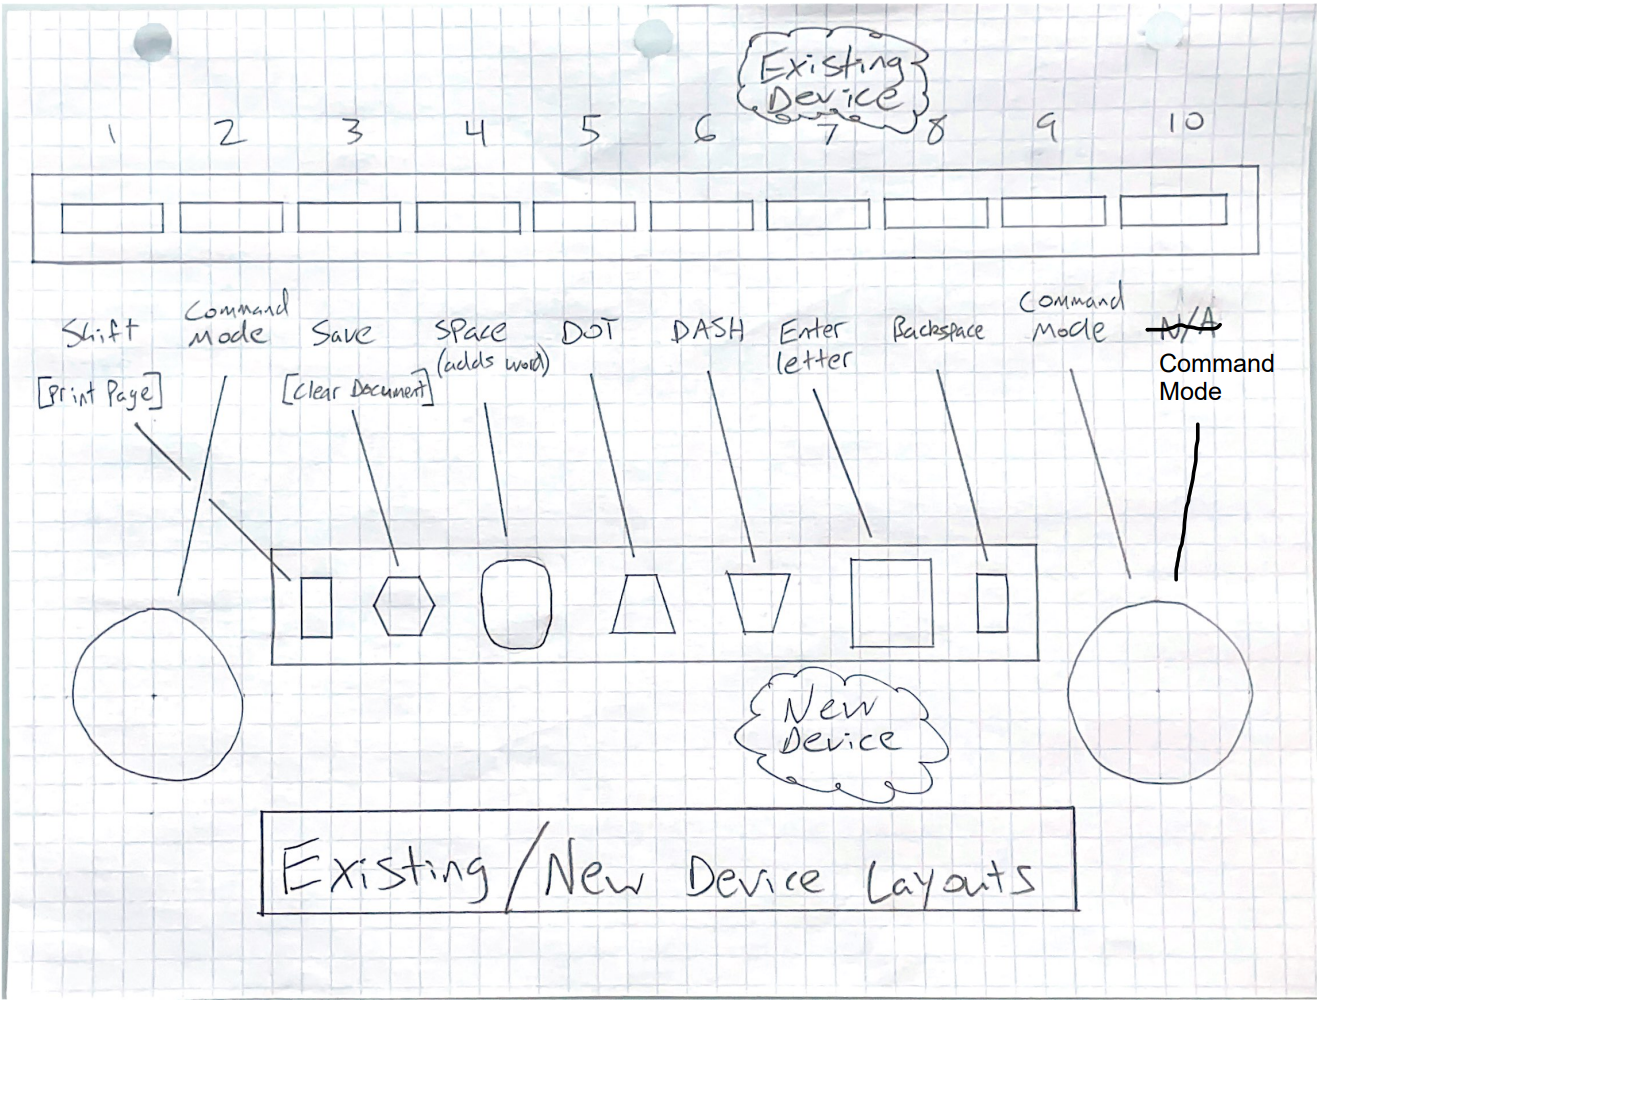 Existing
Device
1 2 3 4 5 6 7 8 9 10
Shift
[Print Page]
Command
Mode
Save
[Clear Document]
SPace
(adds word)
DOT
DASH
Enter
letter
Backspace
Command
Mode
N/A
Command
Mode
New
Device
Existing/New Device Layouts